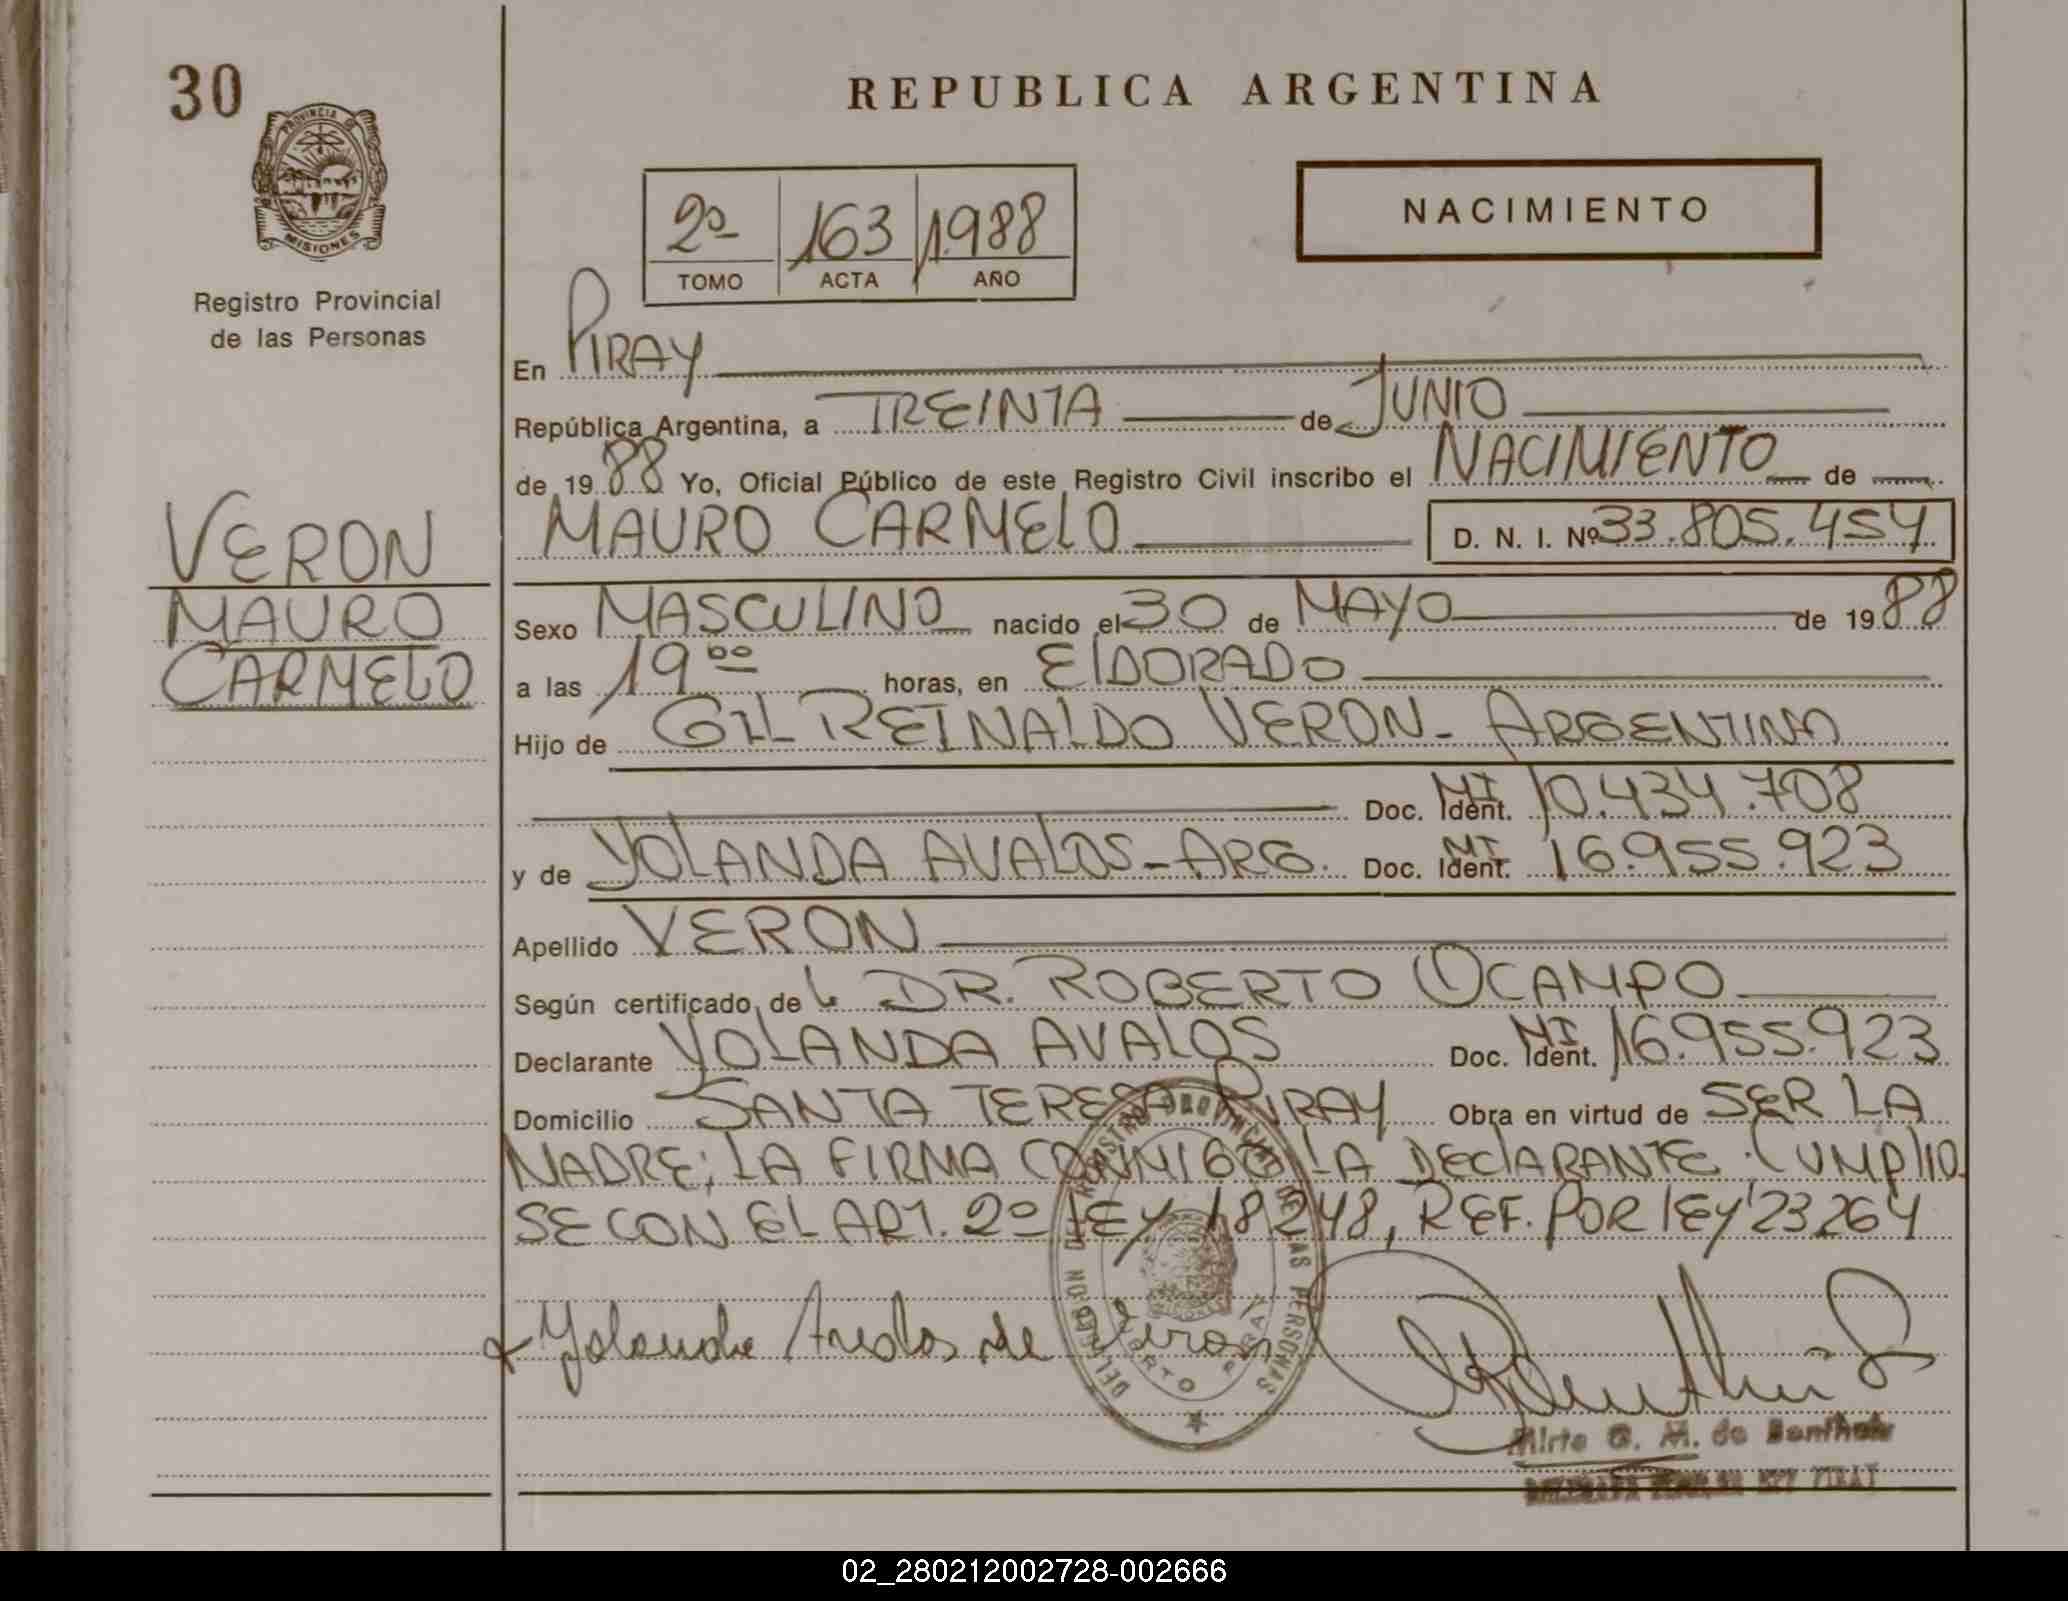 30
REPUBLICA ARGENTINA
PROVINCIA DE
MISIONES
Registro Provincial
de las Personas
2º 163 1988
TOMO ACTA AÑO
NACIMIENTO
En PIRAY
República Argentina, a TREINTA de JUNIO
de 19 88 Yo, Oficial Público de este Registro Civil inscribo el NACIMIENTO de
MAURO CARMELO D. N. I. Nº 33.805.454
VERON
MAURO
CARMELO
Sexo MASCULINO nacido el 30 de MAYO de 19 88
a las 19 00 horas, en ElDORADO
Hijo de GIL REINALDO VERON - ARGENTINO
Doc. Ident. MI 10.434.708
y de YOLANDA AVALOS - ARG. Doc. Ident. MI 16.955.923
Apellido VERON
Según certificado de DR. ROBERTO OCAMPO
Declarante YOLANDA AVALOS Doc. Ident. MI 16.955.923
Domicilio SANTA TERESA PIRAY Obra en virtud de SER LA
MADRE; LA FIRMA CONMIGO LA DEClARANTE. CUMPLIO
SE CON EL ART. 2º LEY 18248, REF. POR lEY 23264
Yolanda Avalos de Veron
REGISTRO PROVINCIAL DE LAS PERSONAS
PUERTO PIRAY
Mirta G. M. de
02_280212002728-002666